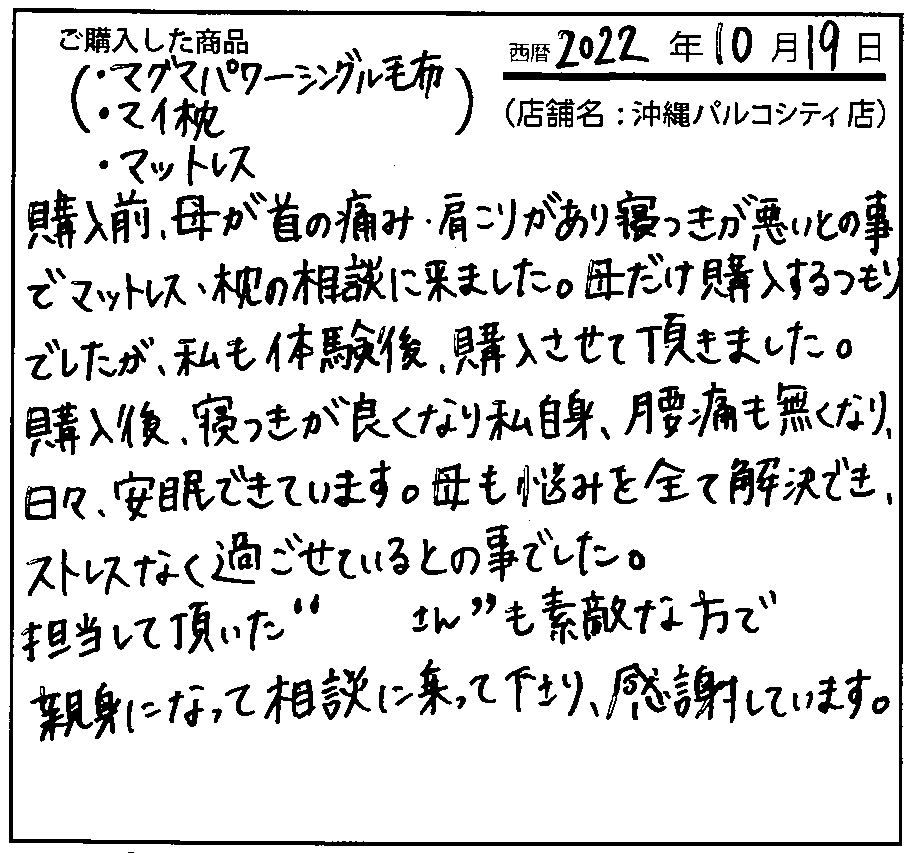 ご購入した商品
西暦 2022 年 10 月 19 日
(・マグマパワーシングル毛布
・マイ枕)
・マットレス
(店舗名:沖縄パルコシティ店)
購入前、母が首の痛み・肩こりがあり寝つきが悪いとの事
でマットレス、枕の相談に来ました。母だけ購入するつもり
でしたが、私も体験後、購入させて頂きました。
購入後、寝つきが良くなり私自身、腰痛も無くなり、
日々、安眠できています。母も悩みを全て解決でき、
ストレスなく過ごせているとの事でした。
担当して頂いた“ さん”も素敵な方で
親身になって相談に乗って下さり、感謝しています。